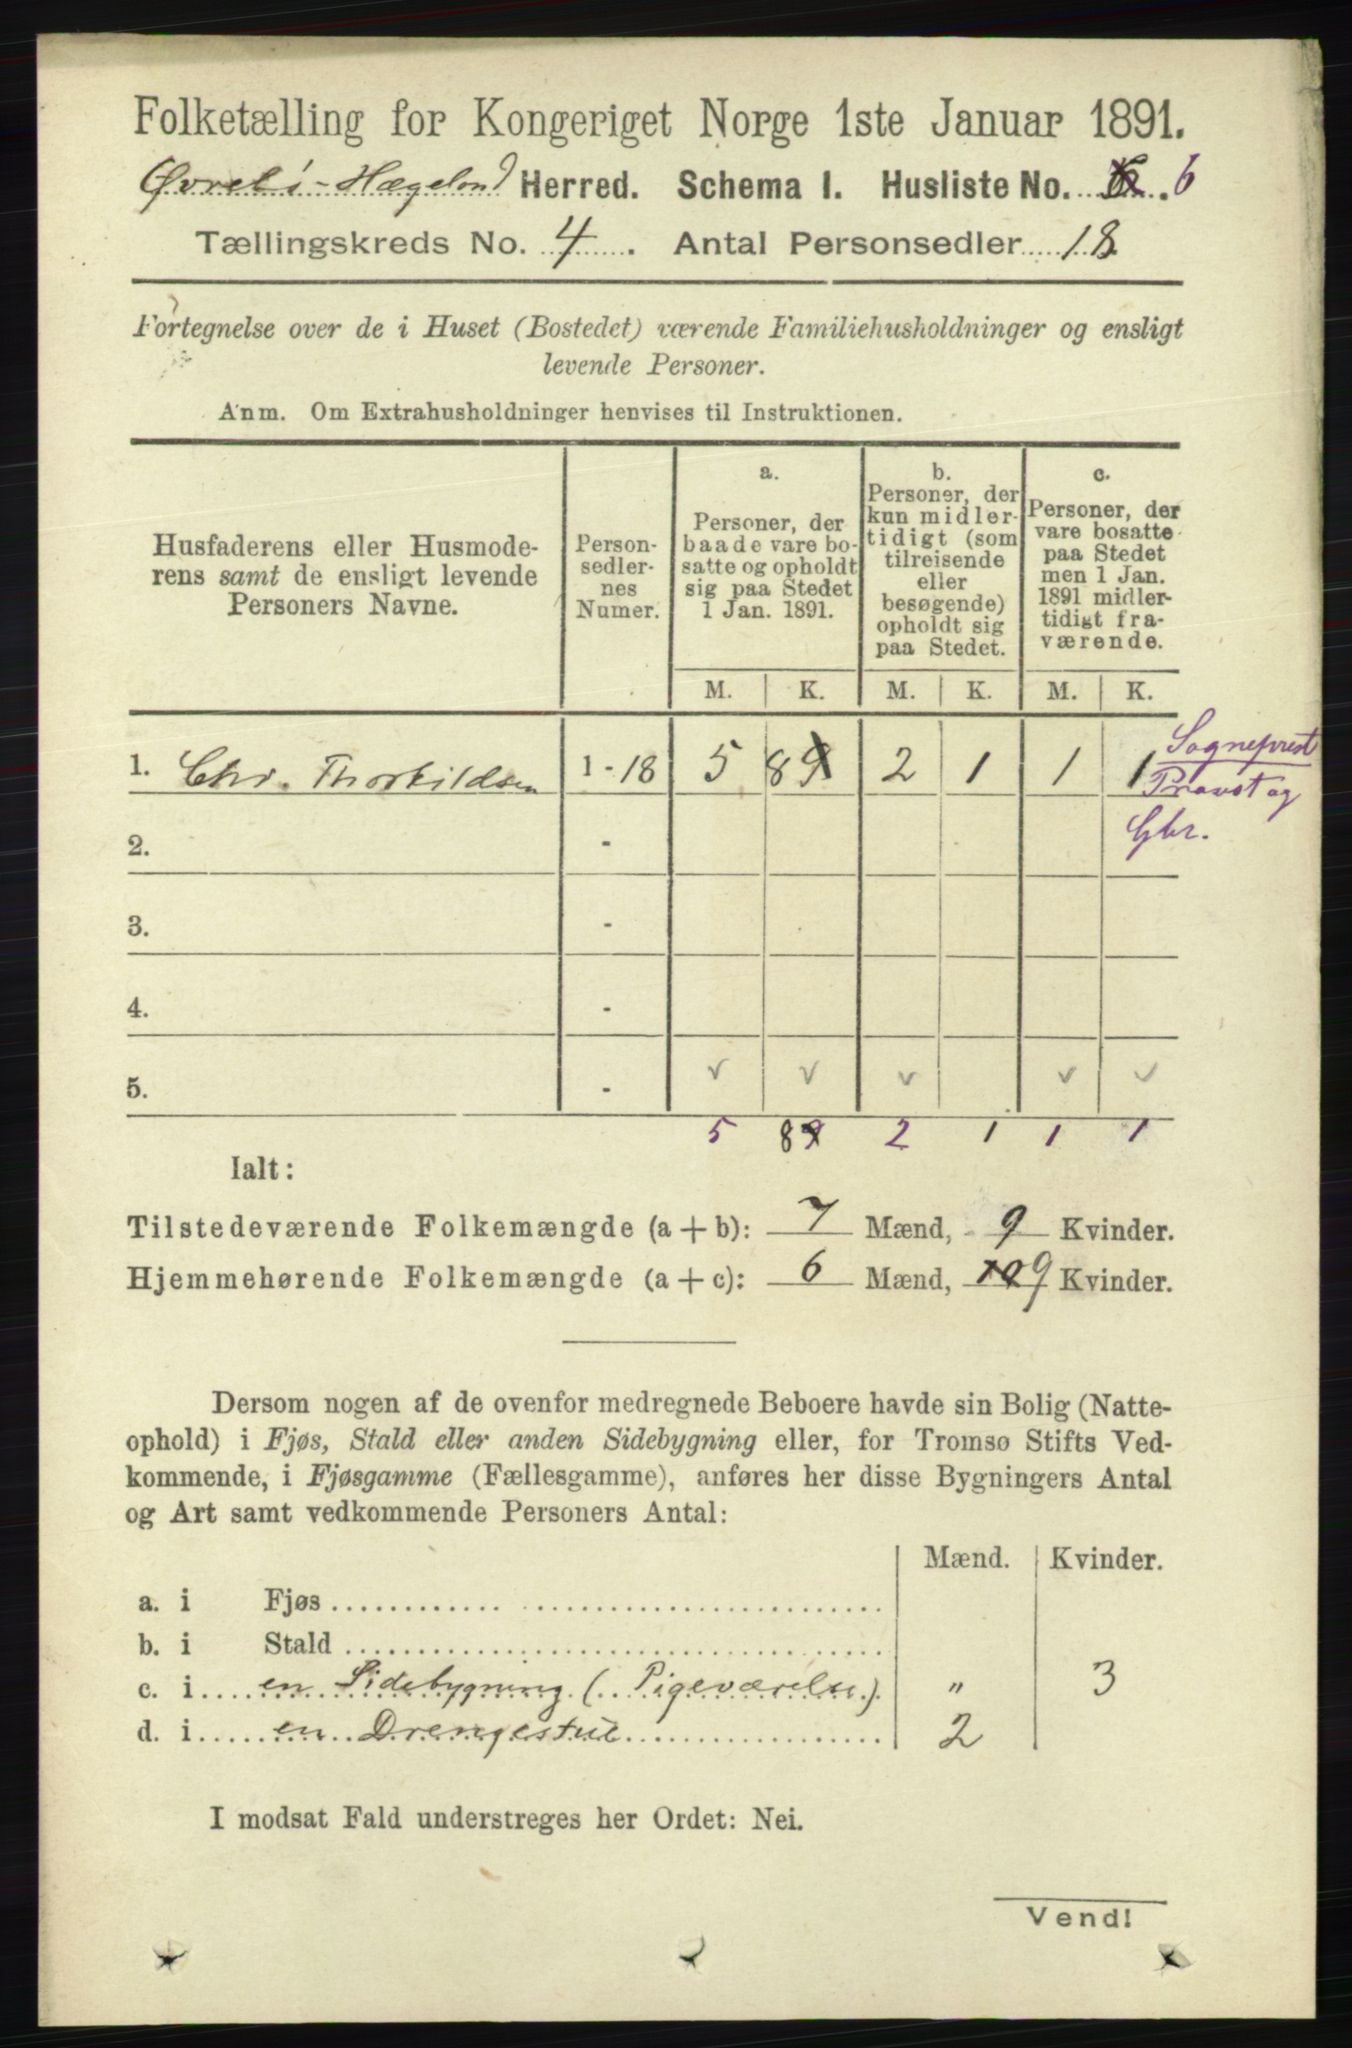 Folketælling for Kongeriget Norge 1ste Januar 1891.
Øvrebø-Hægeland Herred. Schema I. Husliste No. 6
Tællingskreds No. 4. Antal Personsedler 18.
Fortegnelse over de i Huset (Bostedet) værende Familiehusholdninger og ensligt
levende Personer.
Anm. Om Extrahusholdninger henvises til Instruktionen.
Husfaderens eller Husmode-
rens samt de ensligt levende
Personers Navne.
Person-
sedler-
nes
Numer.
a.
Personer, der
baade vare bo-
satte og opholdt
sig paa Stedet
1 Jan. 1891.
b.
Personer, der
kun midler-
tidigt (som
tilreisende
eller
besøgende)
opholdt sig
paa Stedet.
c.
Personer, der
vare bosatte
paa Stedet
men 1 Jan.
1891 midler-
tidigt fra-
værende.
M. K. M. K. M. K.
1. Chr. Thorkildsen 1-18 5 8 9 2 1 1 1 Sogneprest
Provst og
Gbr.
2. -
3. -
4. -
5. -
5 8 9 2 1 1 1
Ialt:
Tilstedeværende Folkemængde (a + b): 7 Mænd, 9 Kvinder.
Hjemmehørende Folkemængde (a + c): 6 Mænd, 10 9 Kvinder.
Dersom nogen af de ovenfor medregnede Beboere havde sin Bolig (Natte-
ophold) i Fjøs, Stald eller anden Sidebygning eller, for Tromsø Stifts Ved-
kommende, i Fjøsgamme (Fællesgamme), anføres her disse Bygningers Antal
og Art samt vedkommende Personers Antal:
Mænd. Kvinder.
a. i Fjøs
b. i Stald
c. i en Sidebygning (Pigeværelse) " 3
d. i en Drengestue 2
I modsat Fald understreges her Ordet: Nei.
Vend!